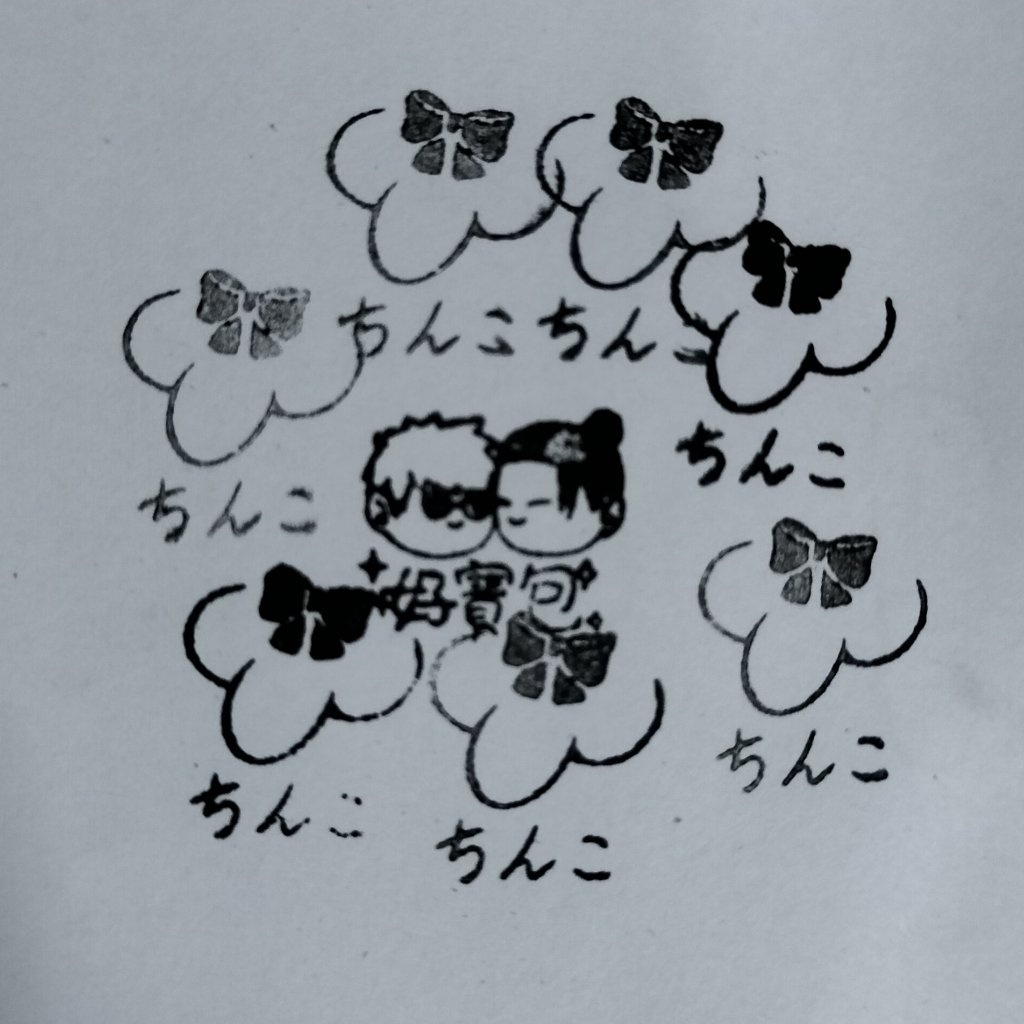 ちんこ ちんこ
ちんこ
ちんこ
好寶句
ちんこ
ちんこ
ちんこ